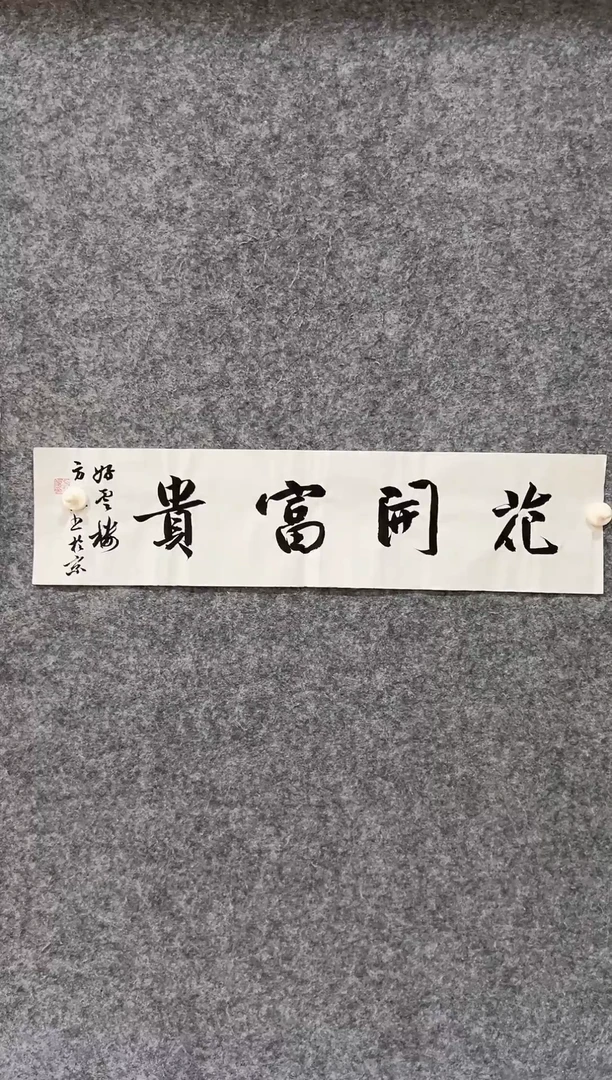 花開富貴
好雲樓
方 书於京